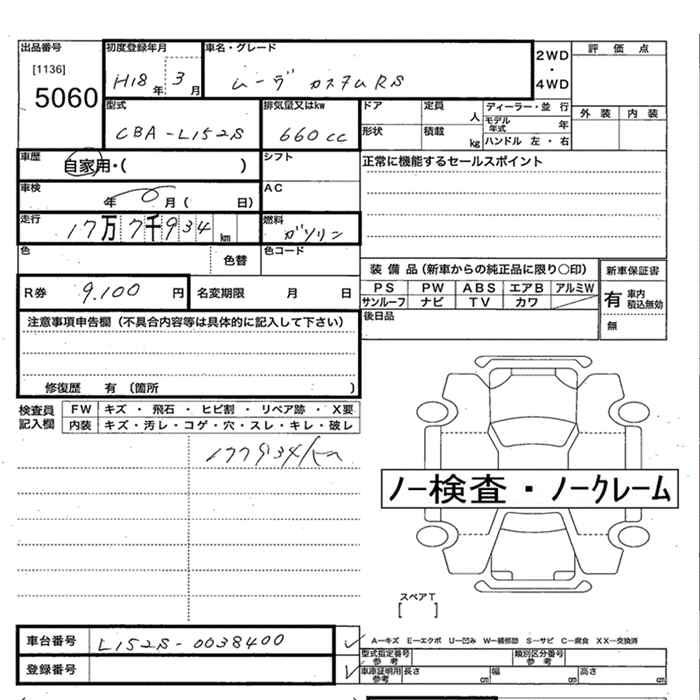 出品番号
[1136]
5060
初度登録年月
H18年 3月
車名・グレード
ムーヴ カスタムRS
2WD
・
4WD
評価点
外装 内装
型式
CBA-L152S
排気量又はkw
660cc
ドア
定員 人
形状
積載 kg
ディーラー・並行
モデル年式 年
ハンドル 左・右
車歴
自家用・( )
シフト
正常に機能するセールスポイント
車検
年 0 月( 日)
AC
走行
17万7千934km
燃料
ガソリン
色
色替
色コード
R券 9,100円
名変期限 月 日
装備品(新車からの純正品に限り○印)
PS PW ABS エアB アルミW
サンルーフ ナビ TV カワ
後日品
新車保証書
有 車内積込無効
無
注意事項申告欄(不具合内容等は具体的に記入して下さい)
修復歴 有(箇所 )
検査員記入欄
FW キズ・飛石・ヒビ割・リペア跡・X要
内装 キズ・汚レ・コゲ・穴・スレ・キレ・破レ
177934km
ノー検査・ノークレーム
スペアT
[ ]
車台番号 L152S-0038400
登録番号
A―キズ E―エクボ U―凹み W―補修跡 S―サビ C―腐食 XX―交換済
型式指定番号 参考
類別区分番号 参考
車庫証明用 参考
長さ cm 幅 cm 高さ cm